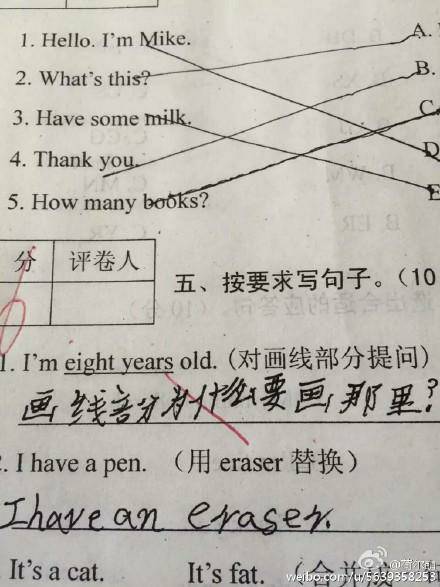 1. Hello. I'm Mike.
A.
2. What's this?
B.
3. Have some milk.
C
4. Thank you.
D
5. How many books?
E
分 评卷人
五、按要求写句子。(10
1. I'm eight years old. (对画线部分提问)
画线部分为什么要画那里?
2. I have a pen. (用 eraser 替换)
I have an eraser.
It's a cat. It's fat. (合并成
weibo.com/u/5639358253